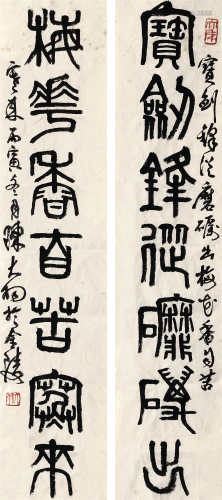 寶劍鋒從磨礪出
梅花香自苦寒來
寶劍鋒從磨礪出梅花香自苦
寒來丙寅冬月陳大羽於金陵